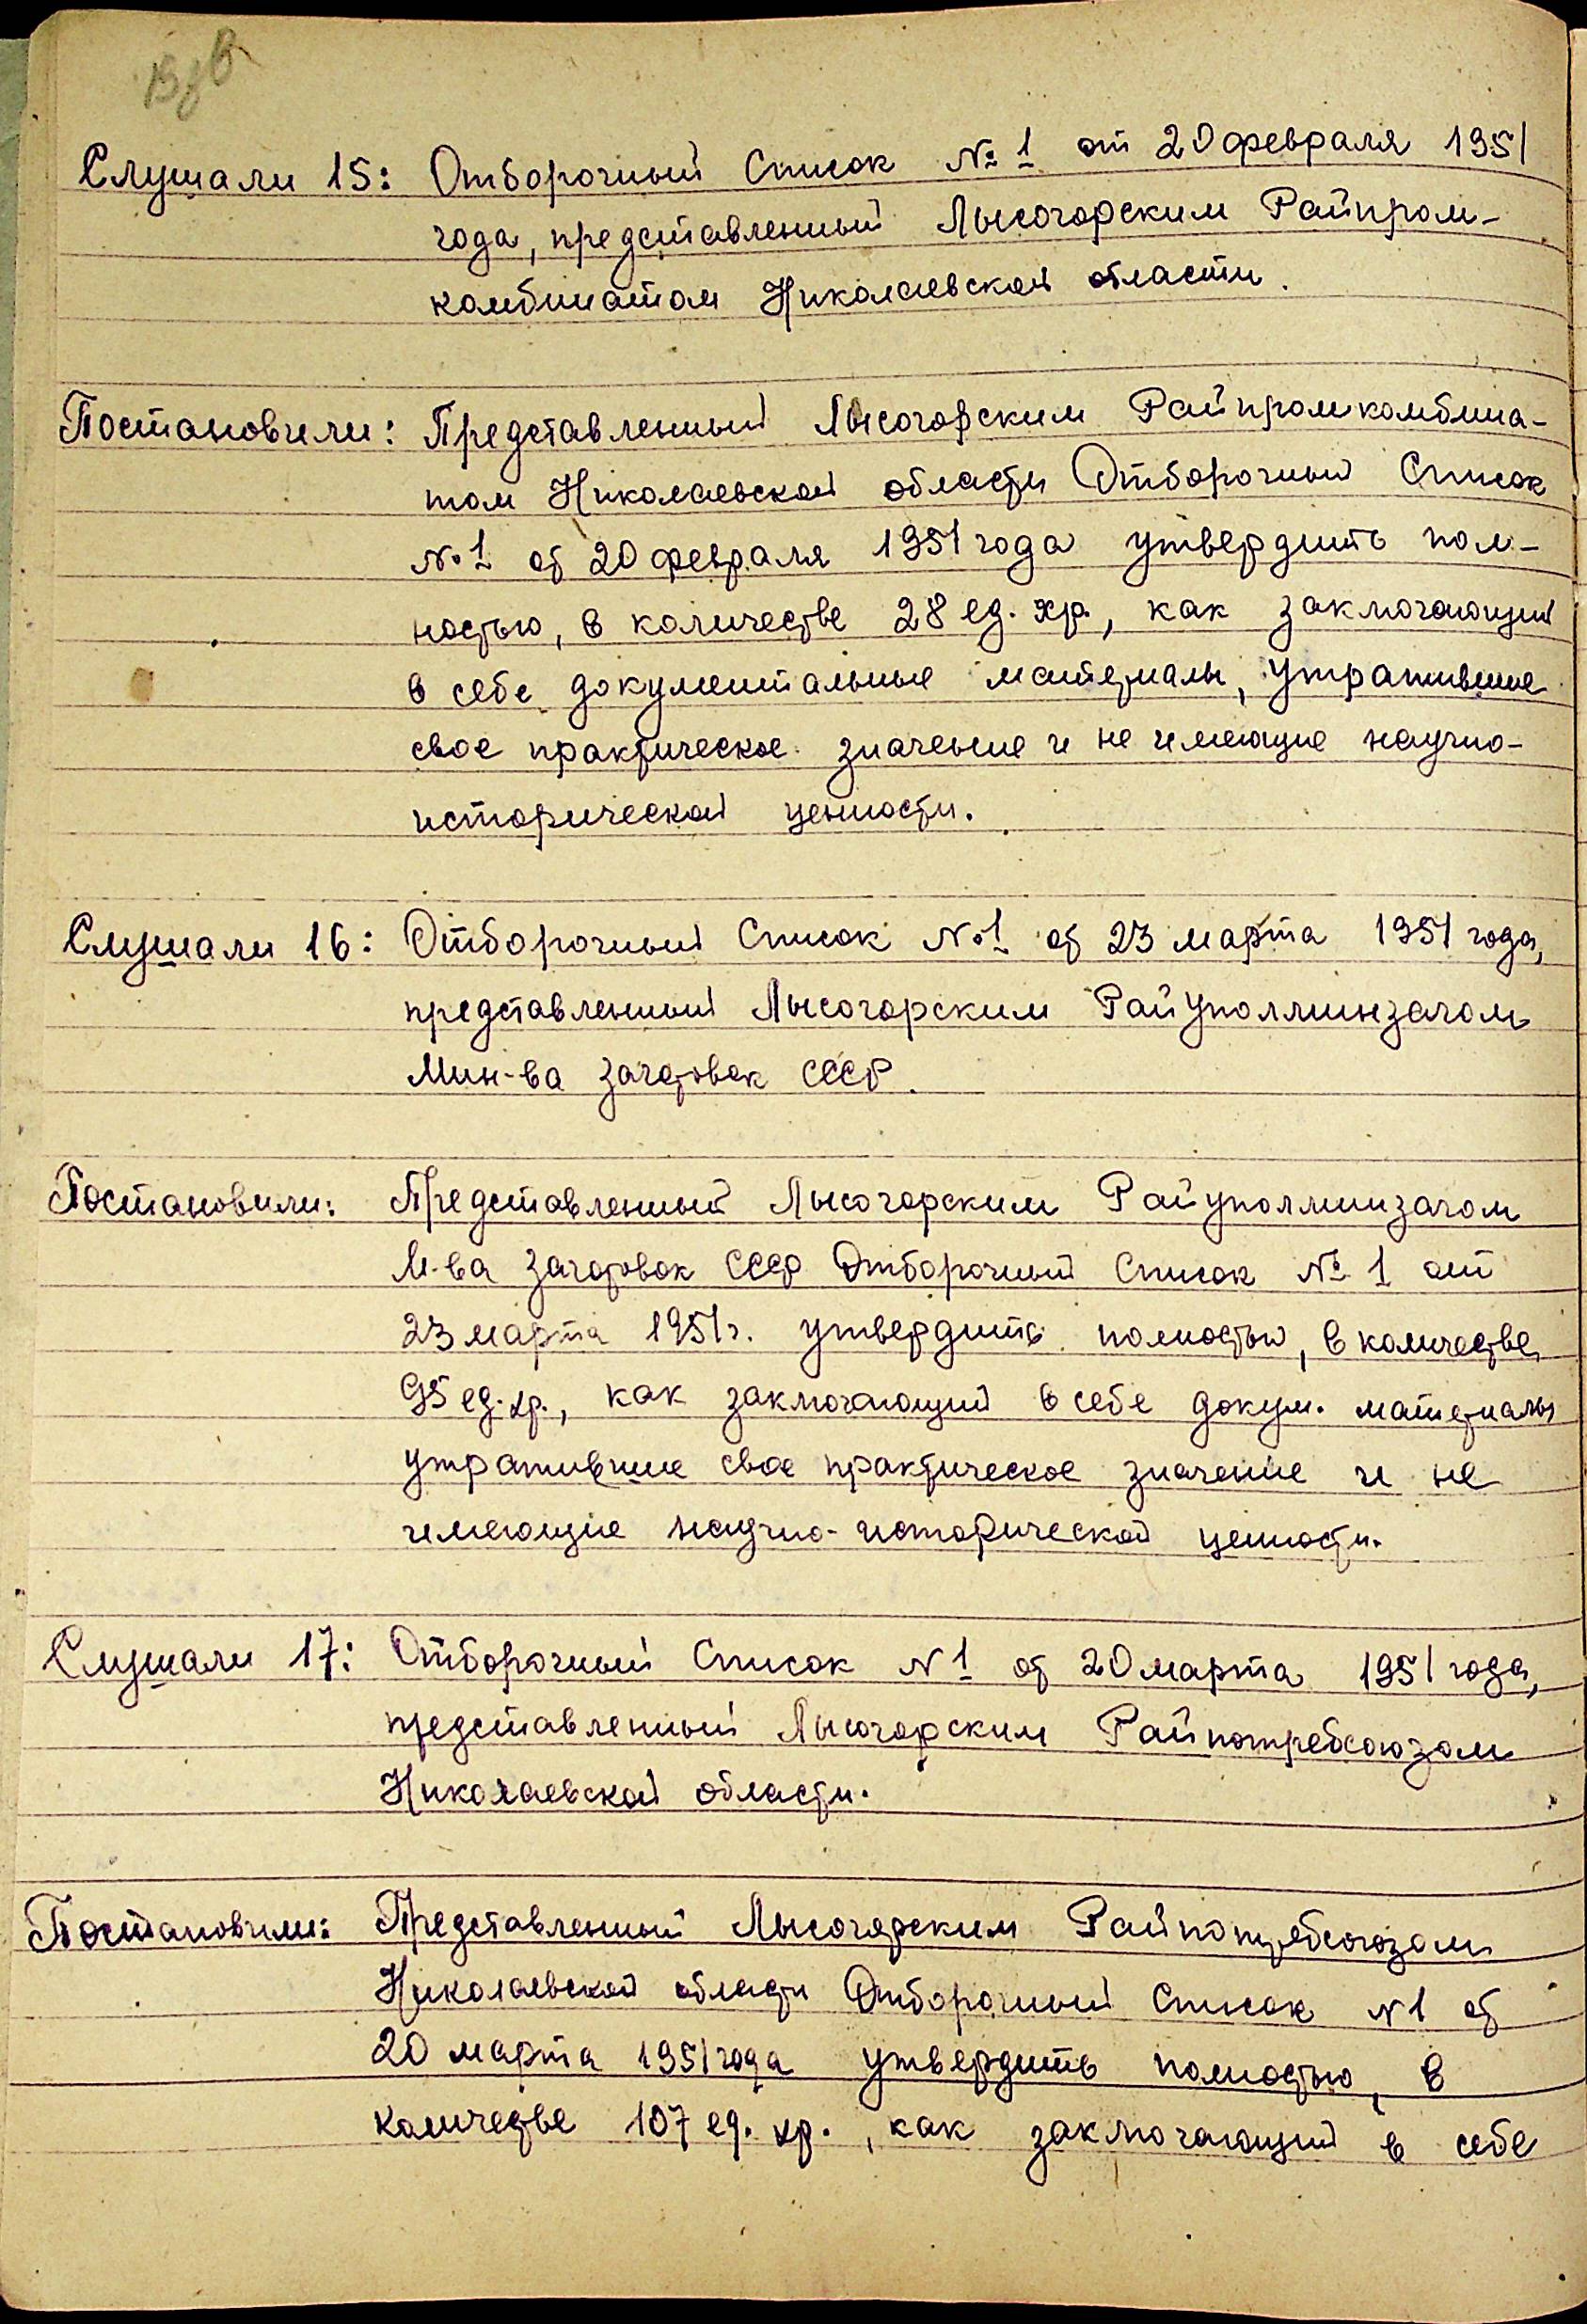 Слушали 15: Отборочный Список № 1 от 20 февраля 1951
года, представленный Лысогорским Райпром-
комбинатом Николаевской области.
Постановили: Представленный Лысогорским Райпромкомбина-
том Николаевской области Отборочный Список
№1 от 20 февраля 1951 года утвердить пол-
ностью, в количестве 28 ед. хр., как заключающий
в себе документальные материалы, утратившие
свое практическое значение и не имеющие научно-
исторической ценности.
Слушали 16: Отборочный Список №1 от 23 марта 1951 года,
представленный Лысогорским Райуполминзагом
Мин-ва заготовок СССР.
Постановили: Представленный Лысогорским Райуполминзагом
М-ва заготовок СССР Отборочный Список № 1 от
23 марта 1951 г. утвердить полностью, в количестве
95 ед. хр., как заключающий в себе докум. материалы
утратившие свое практическое значение и не
имеющие научно-исторической ценности.
Слушали 17: Отборочный Список N 1 от 20 марта 1951 года,
представленный Лысогорским Райпотребсоюзом
Николаевской области.
Постановили: Представленный Лысогорским Райпотребсоюзом
Николаевской области Отборочный Список N1 от
20 марта 1951 года утвердить полностью, в
количестве 107 ед. хр., как заключающий в себе